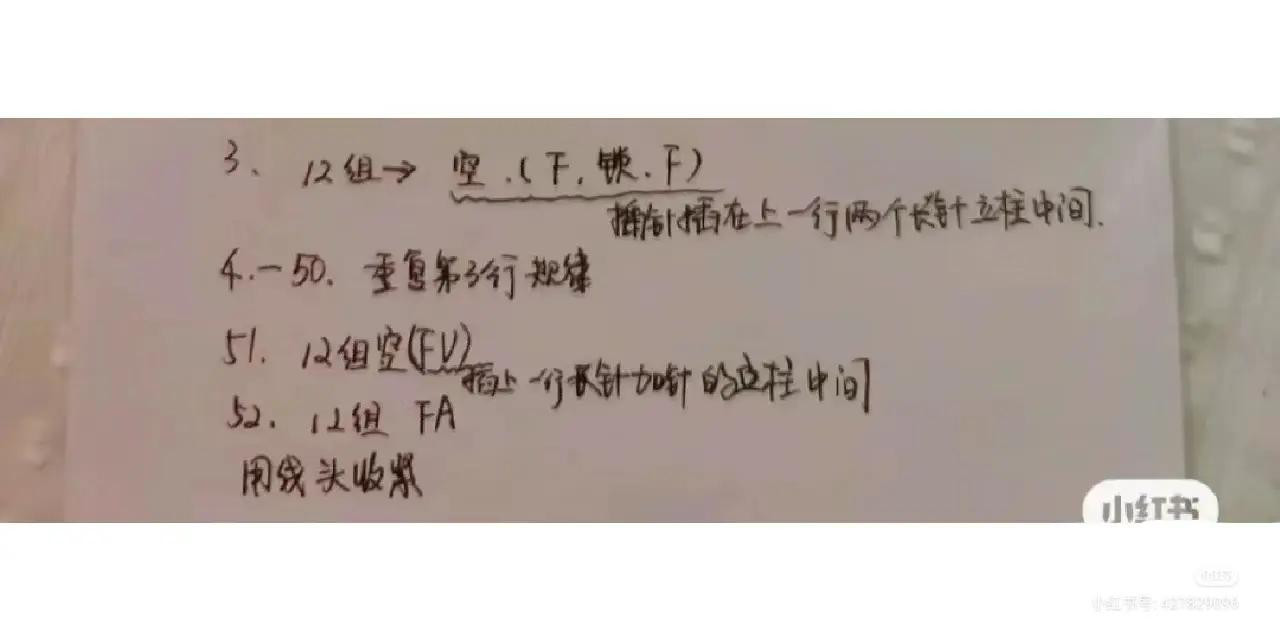 3、 12组→ 空.(F,锁.F)
插在上一行两个长针立柱中间.
4.-50. 重复第3行规律
51. 12组空(FV)
插上一行长针加针的立柱中间
52. 12组 FA
用线头收紧
小红书
小红书
小红书号: 427829096